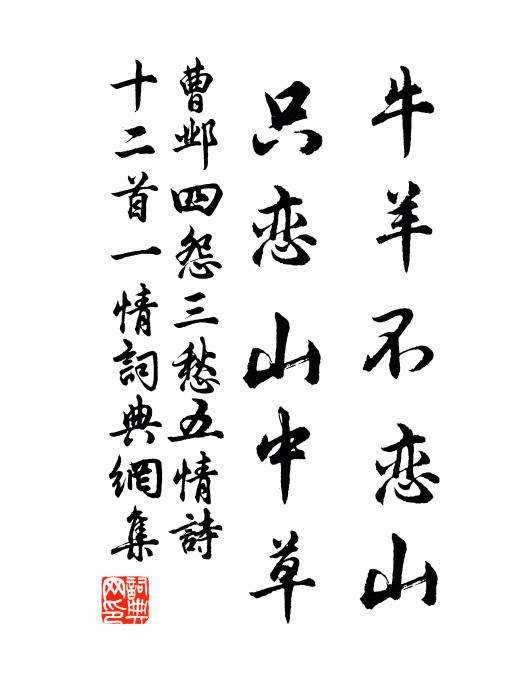 牛羊不恋山
只恋山中草
曹邺四怨三愁五情詩
十二首一情詞典網集
詞典
网印